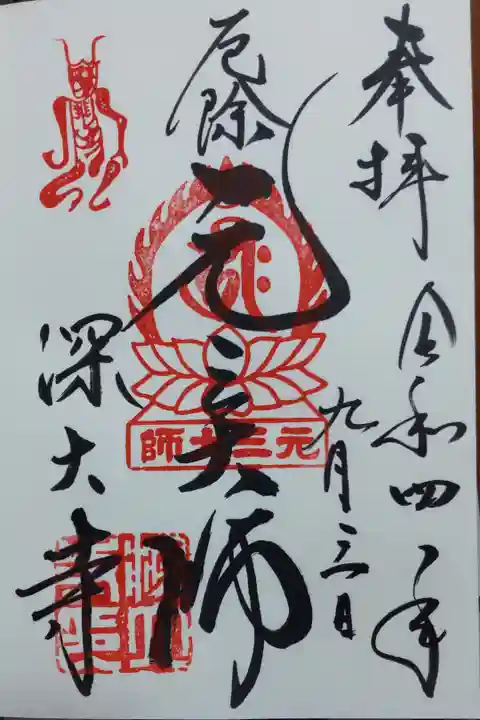 奉拝
令和四年
九月三日
厄除
元三大師
師大三元
深大寺